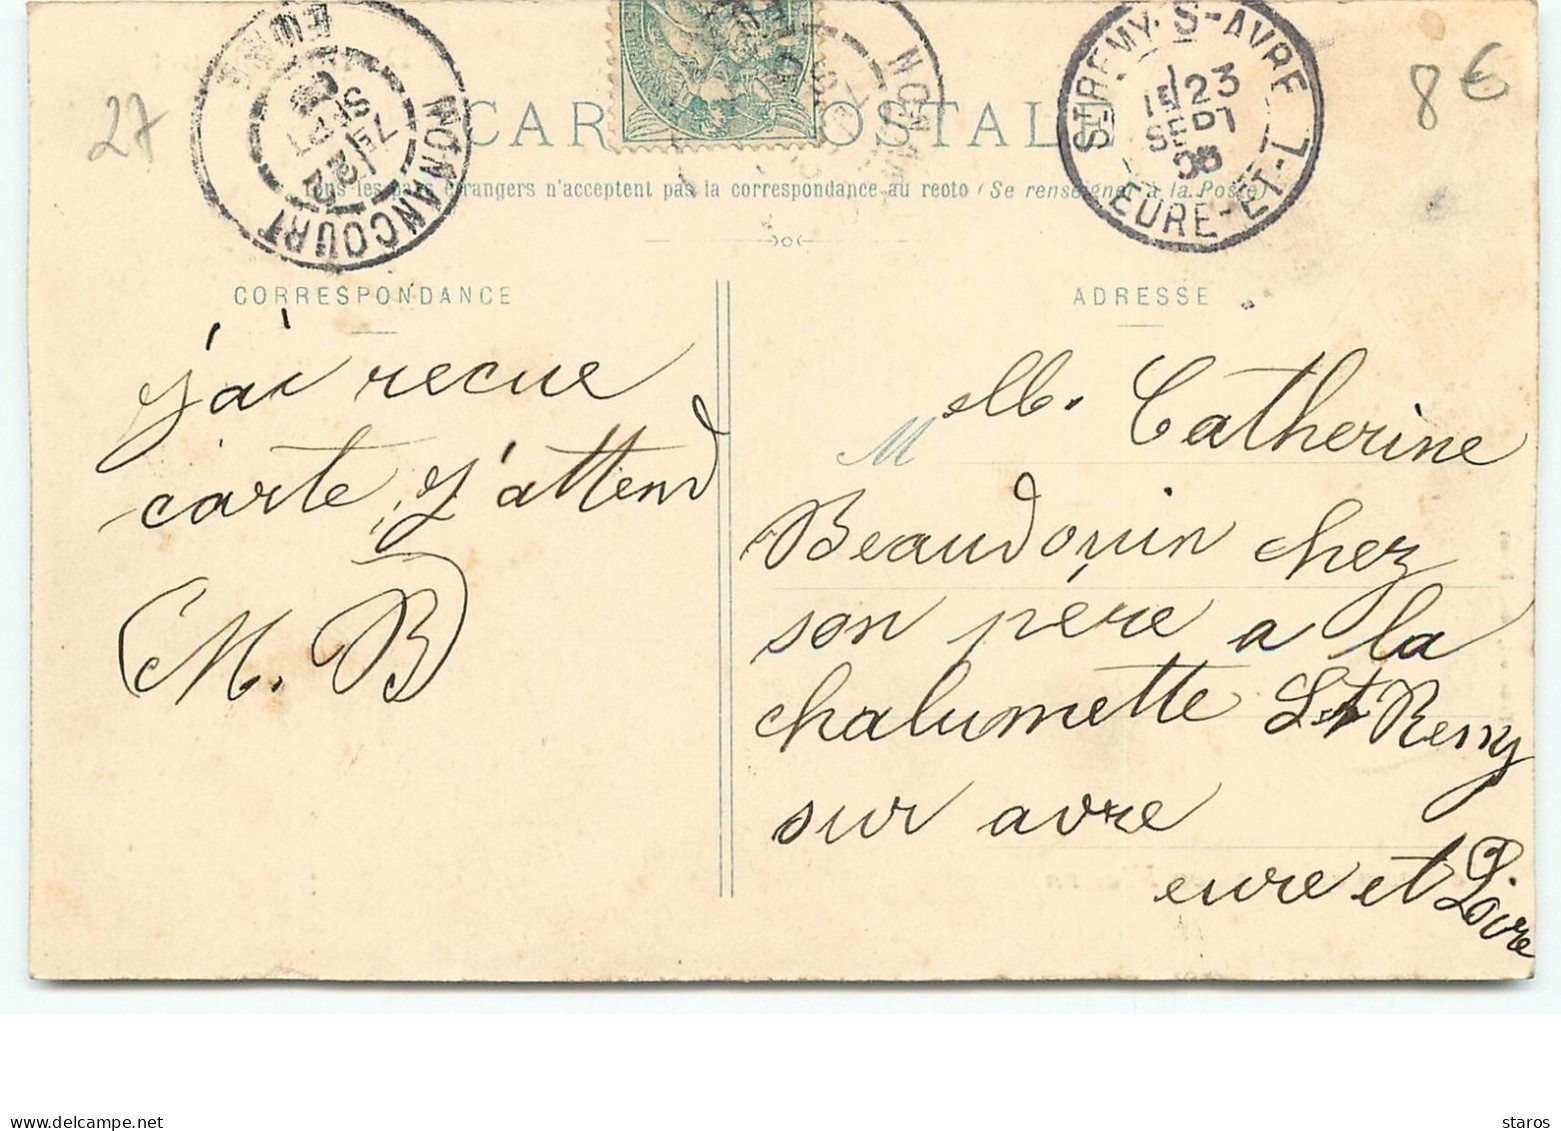 27
NONANCOURT
EURE
7E/22
SEPT
CARTE POSTALE
NONAN
ST REMY-S-AVRE
1E/23
SEPT
EURE-ET-L
8 €
Tous les pays étrangers n'acceptent pas la correspondance au recto (Se renseigner à la Poste)
CORRESPONDANCE
j'ai recue
carte, j'attend
M. B
ADRESSE
Melle. Catherine
Beaudouin chez
son père a la
chalumette St Remy
sur avre
eure et Loire
staros